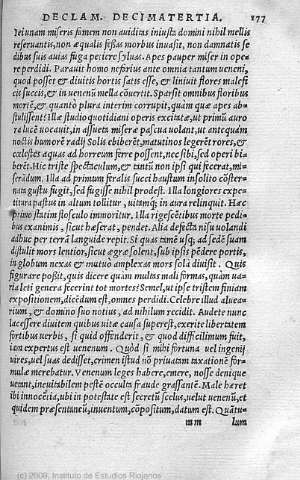 DECLAM. DECIMATERTIA. 177
uel unam miseris famem non auiditas iniusta domini nihil mellis
reseruantis, non æqualis fessas morbus inuasit, non damnatis se
dibus suis auias fuga petiere syluas. Apes pauper miser in ope
re perdidi. Parauit homo nefarius ante omnia tantum ueneni,
quod posset diues efficere, & liniuit flores malefi
cis succis, & in uenenū mella cōuertit. Sparsit omnibus floribus
morē, & quanto plura interim corrupit, quàm quæ apes ab
stulissent! Illæ studio quotidiani operis excitatæ, ut primū auro
ra luce uocauit, in assueta miseræ pascua uolant, ut antequàm
noctis humorē radij Solis ebiberēt, matutinos legerēt rores, &
cœlestes aquas ad horreum ferre possent, nec sibi, sed operi bi-
berēt. Hic triste spectaculum, & tantū non ipsi qui fecerat, mi-
serādum. Illa ad primum feralis succi haustum insolito cōster-
nata gustu fugit, sed fugisse nihil prodest. Illa longiores expe-
ritura pastus in altum tollitur, uitamq; in aura relinquit. Hæc
primo statim flosculo immoritur. Illa rigescētibus morte pedi-
bus exanimis, sicut hæserat, pendet. Alia defecta nisu uolandi
adhuc per terrā languide repit. Si quas tamē usq; ad sedē suam
distulit mors lentior, sicut ægræ solent, sub ipsis pēdere portis,
in globum nexas & mutuo amplexas mors sola diuisit. Quis
figurare possit, quis dicere quàm multas mali formas, quàm ua-
ria leti genera fecerint tot mortes? Semel, ut ipse tristem finiam
expositionem, dicēdum est, omnes perdidi. Celebre illud aluea-
rium, & domino suo notius, ad nihilum recidit. Audete nunc
lacessere diuitem quibus uitæ causa superest, exerite libertatem
fortibus uerbis, si quid offenderit, & quod difficillimum fuit,
iam expertus est uenenum. Quòd si mihi fortuna uel ingenij
uires, uel suas dedisset, crimen istud nō priuatam taxationē for-
mulæ merebatur. Venenum leges habere, emere, nosse denique
uetant, ineuitabilem pestē occulta fraude grassantē. Male hæret
ibi innocētia, ubi in potestate est secretū scelus, uelut uenenū, et
quidem præsentaneū, inuentum, cōpositum, datum est. Quātu-
m m
(c) 2009, Instituto de Estudios Riojanos